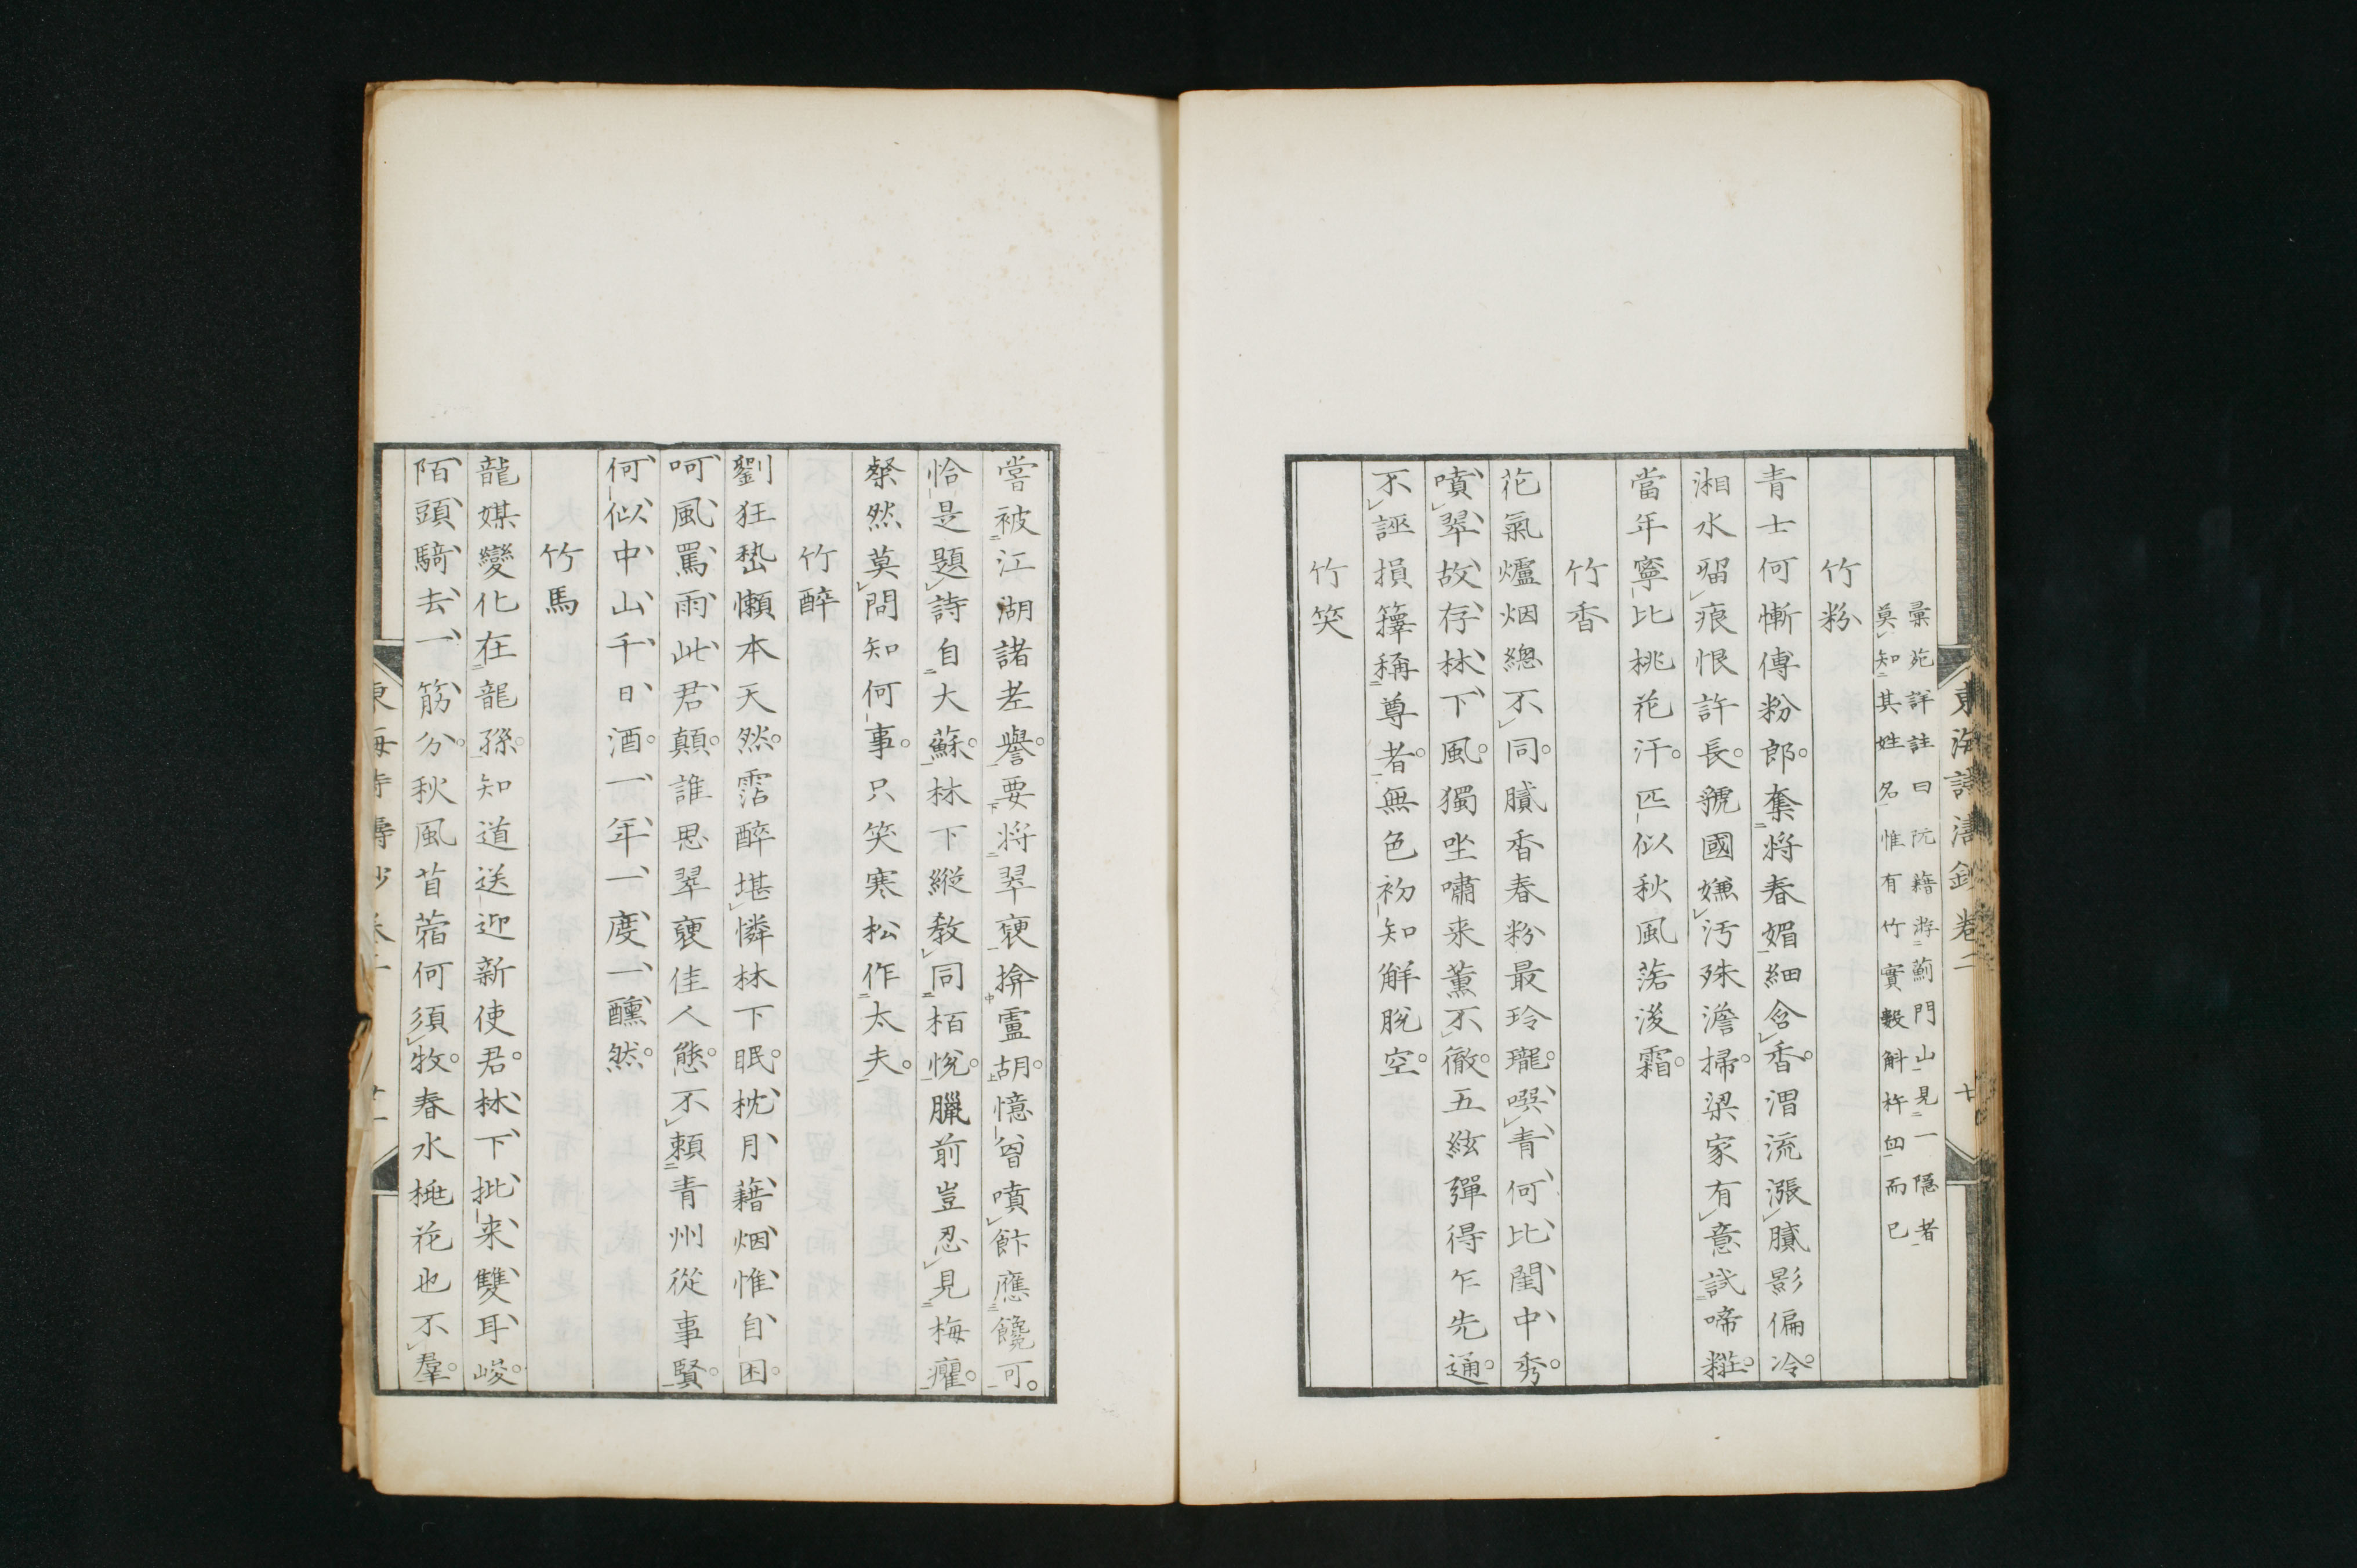 彙苑詳註曰阮籍游薊門山見一隱者
莫知其姓名惟有竹實數斛杵臼而已
竹粉
青士何慚傅粉郎奪將春媚細含香渭流漲膩影偏冷
湘水留痕恨許長虢國嫌汚殊澹掃梁家有意試啼粧
當年寧比桃花汗匹似秋風落後霜
竹香
花氣爐烟總不同膩香春粉最玲瓏噀青何比閨中秀
噴翠故存林下風獨坐嘯来薰不徹五絃彈得乍先通
不誣損籜稱尊者無色初知解脫空
竹笑
嘗被江湖諸老譽要將翠褎揜盧胡憶曾噴飰應饞可
恰是題詩自大蘇林下縱教同栢悅臘前豈忍見梅癯
粲然莫問知何事只笑寒松作太夫
竹醉
劉狂嵆懶本天然霑醉堪憐林下眠枕月藉烟惟自困
呵風罵雨此君顛誰思翠褎佳人態不頼青州從事賢
何似中山千日酒一年一度一醺然
竹馬
龍媒變化在龍孫知道送迎新使君林下批来雙耳峻
陌頭騎去一筋分秋風苜蓿何須牧春水桃花也不羣